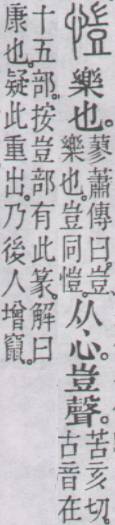 愷樂也。蓼蕭傳曰。豈、樂也。豈同愷。从心。豈聲。苦亥切。古音在
十五部。按豈部有此篆。解曰
康也。疑此重出。乃後人增竄。